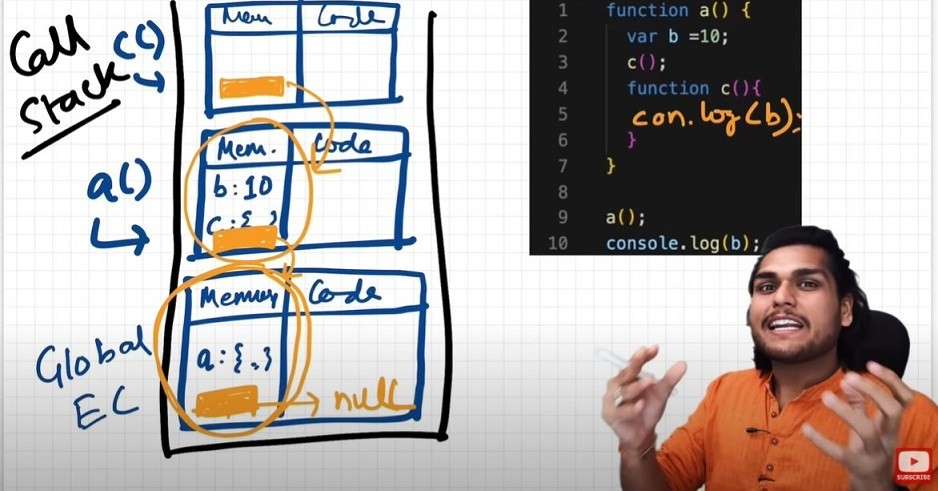 Call
Stack
c()
Mem
Code
a()
Mem.
Code
b:10
c:{ }
Global
EC
Memory
Code
a:{.}
null
1 function a() {
2 var b =10;
3 c();
4 function c(){
5 con.log(b);
6 }
7 }
8
9 a();
10 console.log(b);
SUBSCRIBE